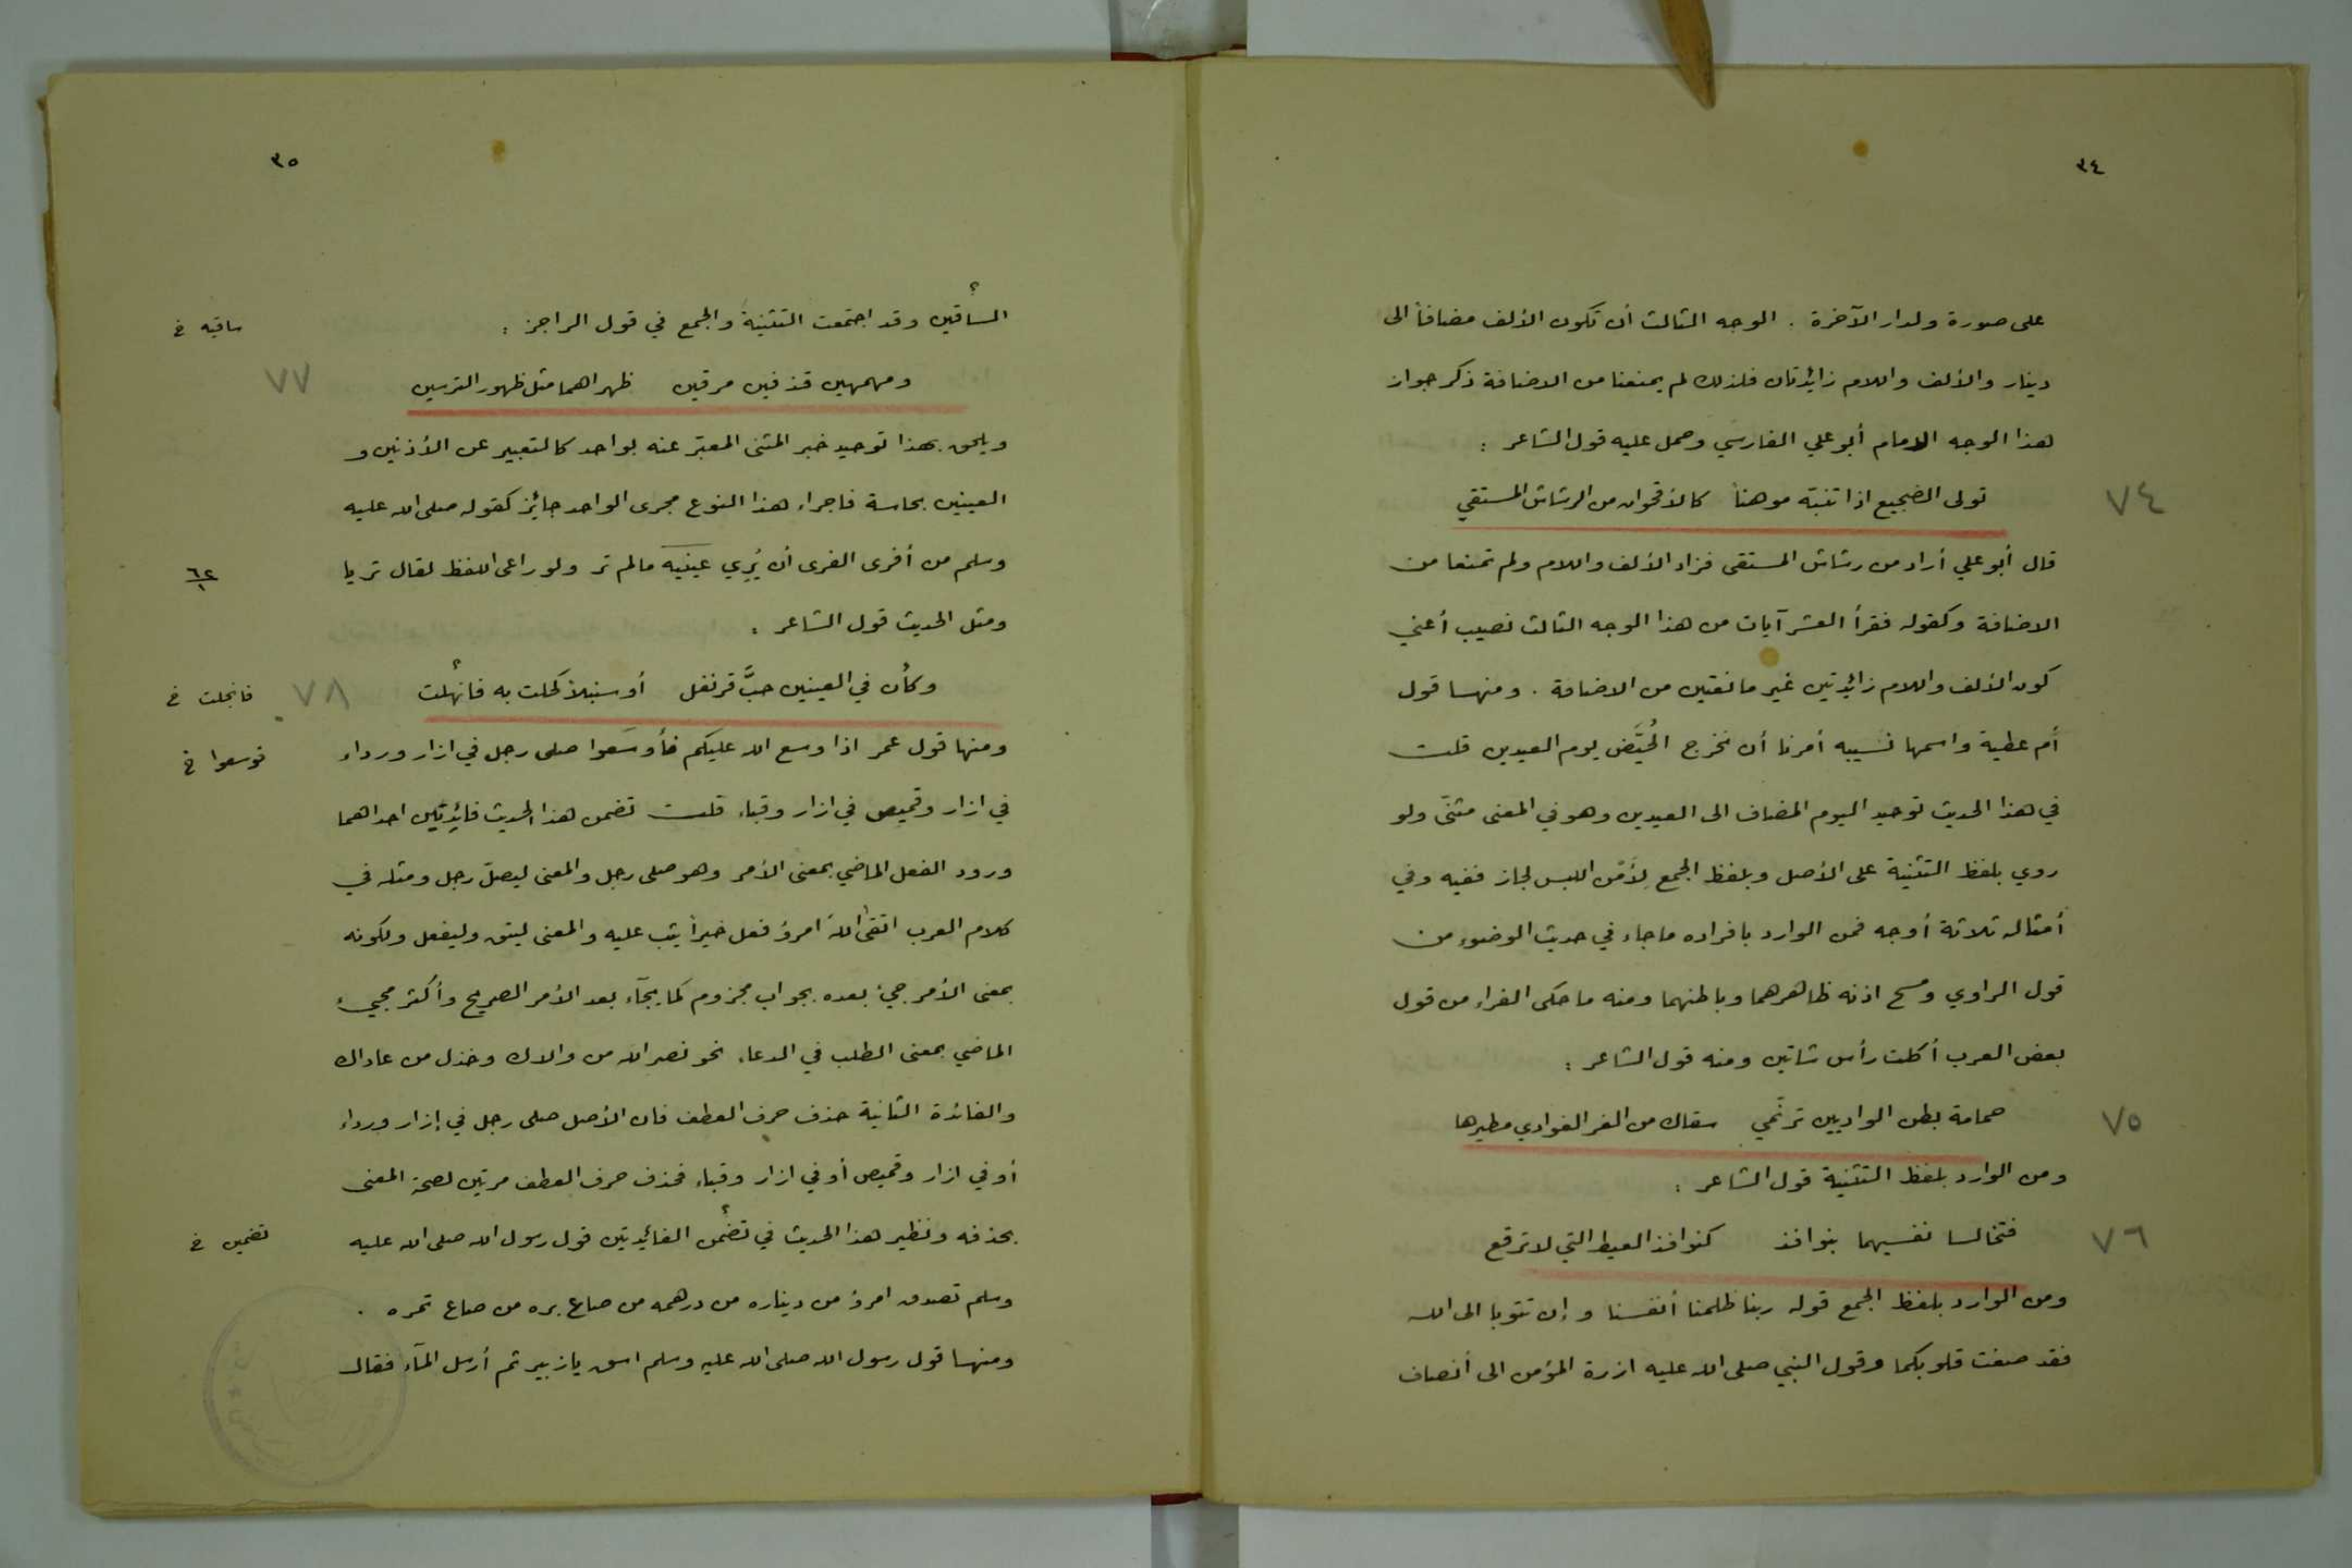 ٣٤
على صورة ولدار الآخرة . الوجه الثالث أن تكون الألف مضافاً الى
دينار والألف واللام زائدتان فلذلك لم يمنعنا من الاضافة ذكر جواز
هذا الوجه الامام أبو علي الفارسي وحمل عليه قول الشاعر :
تولى الضجيع اذا تنبّه موهناً كالأقحوان من الرشاش المستقي
٧٤
قال أبو علي أراد من رشاش المستقى فزاد الألف واللام ولم تمنعا من
الاضافة وكقوله فقرأ العشر آيات من هذا الوجه الثالث نصيب أعني
كون الألف واللام زائدتين غير مانعتين من الاضافة . ومنها قول
أم عطية واسمها نسيبه أمرنا أن نخرج الحُيَّض يوم العيدين قلت
في هذا الحديث توحيد اليوم المضاف الى العيدين وهو في المعنى مثنّى ولو
روي بلفظ التثنية على الأصل وبلفظ الجمع لِأَمْن اللبس لجاز ففيه وفي
أمثاله ثلاثة أوجه فمن الوارد بافراده ما جاء في حديث الوضوء من
قول الراوي ومسح اذنه ظاهرهما وباطنهما ومنه ما حكى الفراء من قول
بعض العرب أكلت رأس شاتين ومنه قول الشاعر :
حمامة بطن الواديين ترنّمي سقاك من الغر الغوادي مطيرها
٧٥
ومن الوارد بلفظ التثنية قول الشاعر :
فتخالسا نفسيهما بنوافذ كنوافذ العبط التي لا ترقع
٧٦
ومن الوارد بلفظ الجمع قوله ربنا ظلمنا أنفسنا و إن تتوبا الى الله
فقد صغت قلوبكما وقول النبي صلى الله عليه ازرة المؤمن الى أنصاف
٣٥
الساقين وقد اجتمعت التثنية والجمع في قول الراجز :
ساقيه خ
ومهمهين قذفين مرقين ظهراهما مثل ظهور الترسين
٧٧
ويلحق بهذا توحيد خبر المثنى المعبّر عنه بواحد كالتعبير عن الأذنين و
العينين بحاسة فاجراء هذا النوع مجرى الواحد جائز كقوله صلى الله عليه
وسلم من أفرى الفرى أن يُرِي عينيه مالم تر ولو راعى اللفظ لقال تريا
ومثل الحديث قول الشاعر :
وكأن في العينين حبَّ قرنفل أو سنبلاً كحلت به فانهلت
٧٨
فانجلت خ
ومنها قول عمر اذا وسع الله عليكم فأوسَعوا صلى رجل في ازار ورداء
توسعوا خ
في ازار وقميص في ازار وقباء قلت تضمن هذا الحديث فائدتين احداهما
ورود الفعل الماضي بمعنى الأمر وهو صلى رجل والمعنى ليصلّ رجل ومثله في
كلام العرب اتقى اللهَ امرؤ فعل خيراً يثب عليه والمعنى ليتق وليفعل ولكونه
بمعنى الأمر جيء بعده بجواب مجزوم كما يجآء بعد الأمر الصريح وأكثر مجيء
الماضي بمعنى الطلب في الدعاء نحو نصر الله من والاك وخذل من عاداك
والفائدة الثانية حذف حرف العطف فان الأصل صلى رجل في إزار ورداء
أو في ازار وقميص أو في ازار وقباء فحذف حرف العطف مرتين لصحة المعنى
بحذفه ونظير هذا الحديث في تضمن الفائدتين قول رسول الله صلى الله عليه
تضمين خ
وسلم تصدق امرؤ من ديناره من درهمه من صاع بره من صاع تمره .
ومنها قول رسول الله صلى الله عليه وسلم اسق يا زبير ثم أرسل المآء فقال